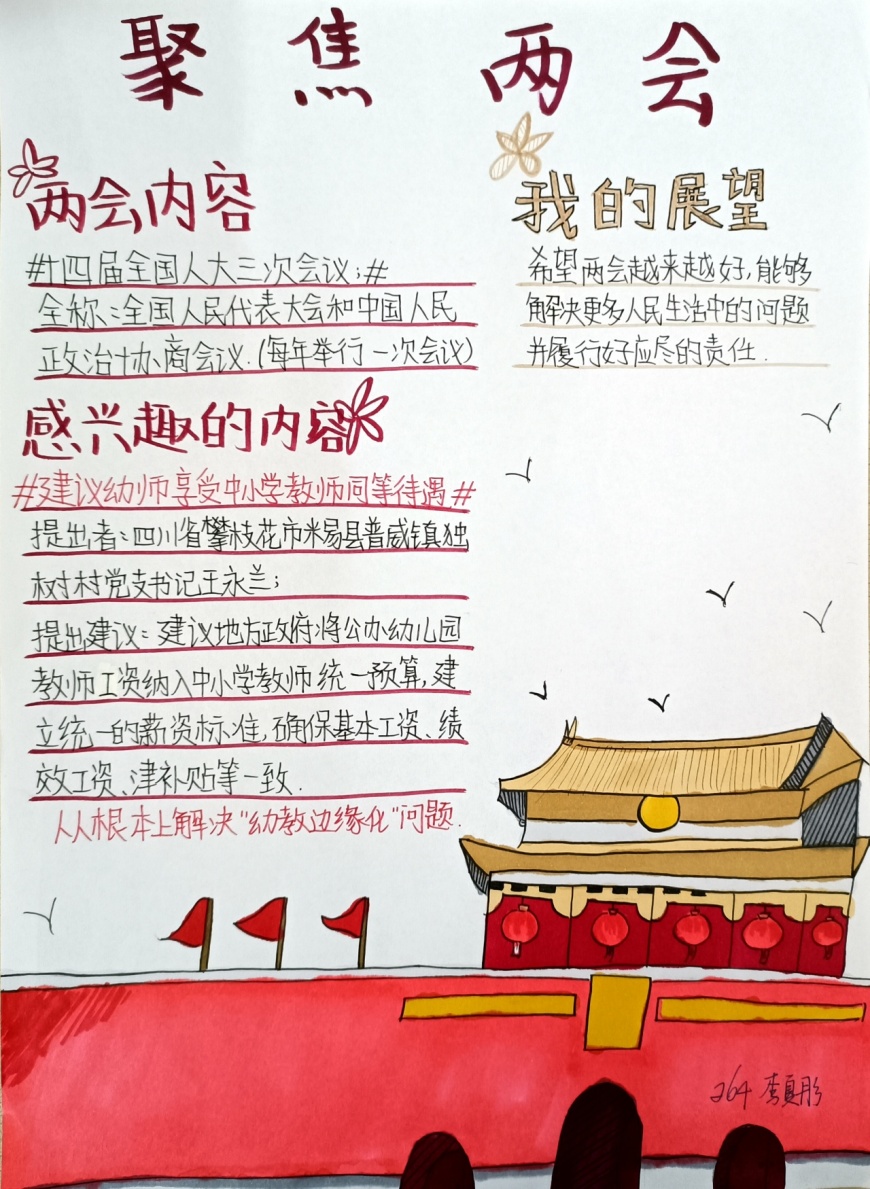 聚焦两会
两会内容
#十四届全国人大三次会议;#
全称:全国人民代表大会和中国人民
政治协商会议.(每年举行一次会议)
感兴趣的内容
#建议幼师享受中小学教师同等待遇#
提出者:四川省攀枝花市米易县普威镇独
树村党支书记王永兰;
提出建议:建议地方政府将公办幼儿园
教师工资纳入中小学教师统一预算,建
立统一的薪资标准,确保基本工资、绩
效工资、津补贴等一致.
从根本上解决“幼教边缘化”问题.
我的展望
希望两会越来越好,能够
解决更多人民生活中的问题
并履行好应尽的责任.
264 李夏彤